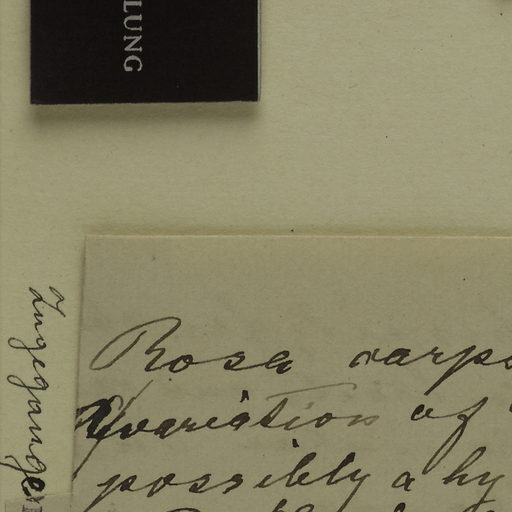 LUNG
Rosa carpo
variation of
possibly a hy
Zugegangen